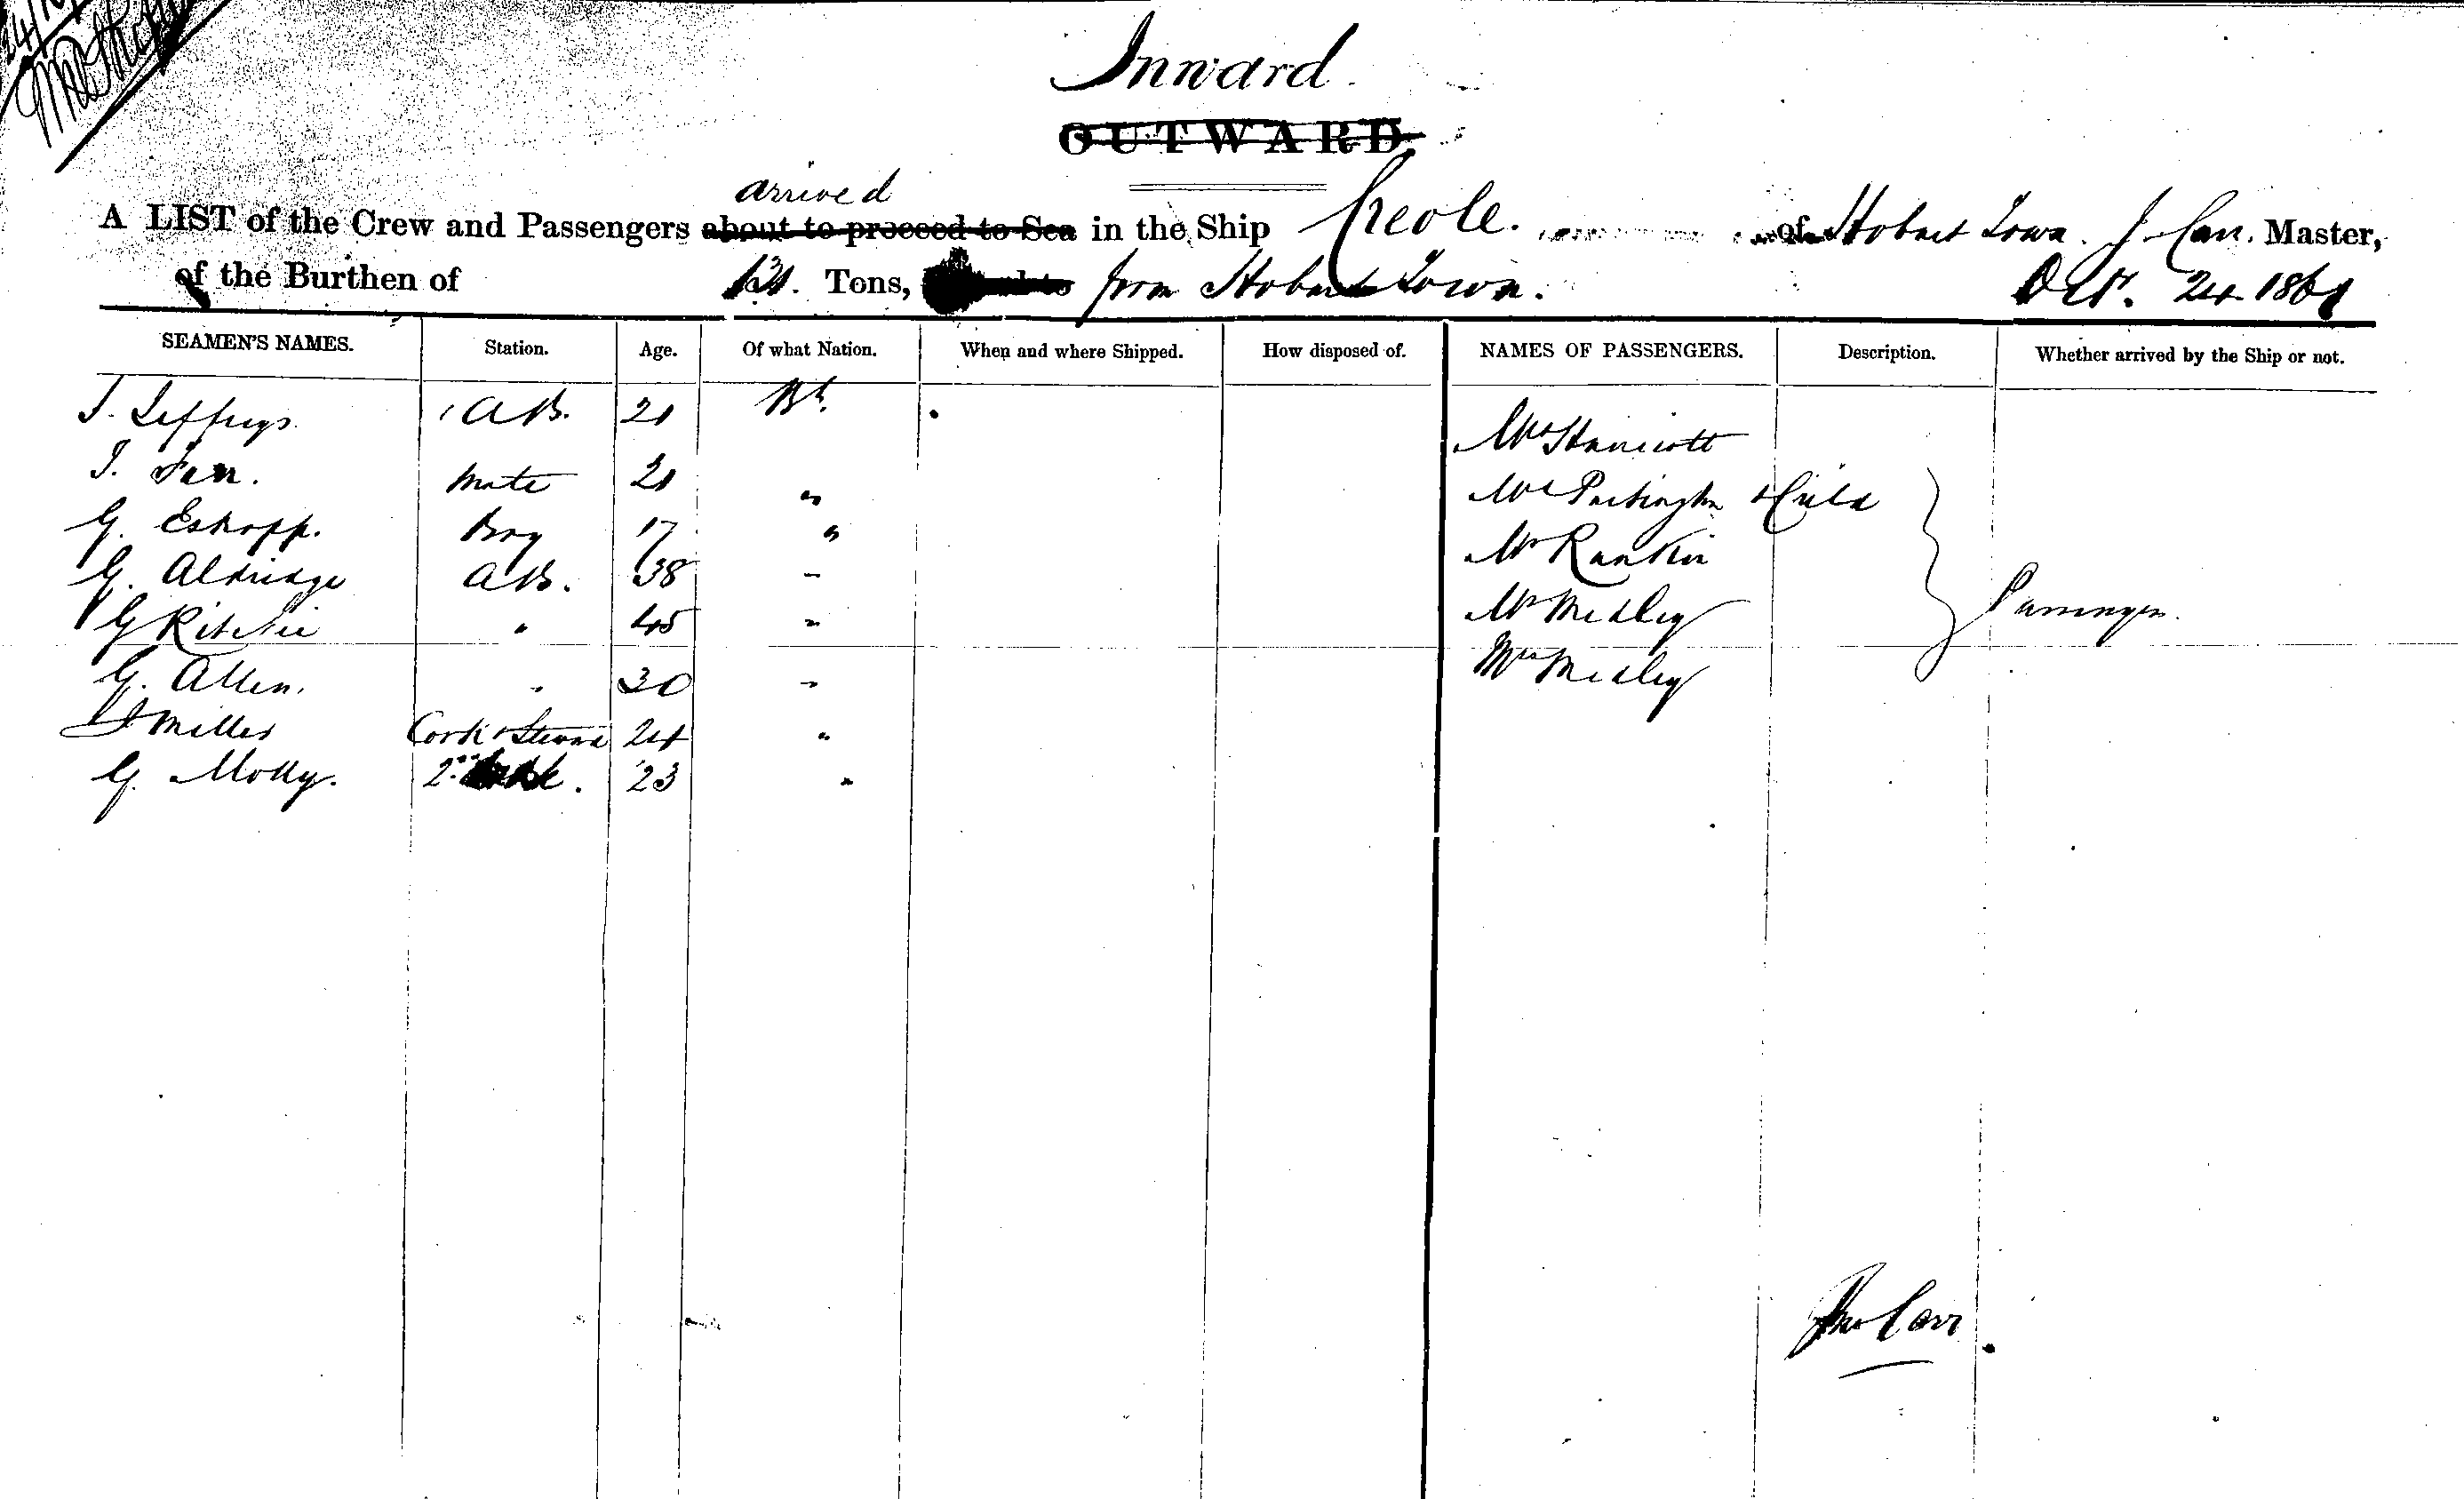 Inward.
OUTWARD.
arrived
A LIST of the Crew and Passengers about to proceed to Sea in the Ship Creole. of Hobart Town. J. Carr. Master,
of the Burthen of Tons, from Hobart Town. Octr. 24 1861
SEAMEN'S NAMES. Station. Age. Of what Nation. When and where Shipped. How disposed of. NAMES OF PASSENGERS. Description. Whether arrived by the Ship or not.
J. Jeffreys. AB. 21 Bh.
Mate 21 "
G. Boy 17 "
G. Aldridge AB. 38 -
G Ritchie " 45 "
G. Allen. " 30 "
Miller Cook & Steward 24 "
G. 2nd 23 "
Mrs
Mrs Partington & Child
Mr Rankin
Mr Medley
Mrs Medley
Passengers.
Jno Carr